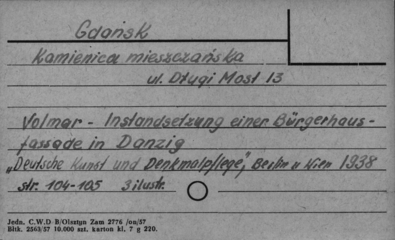 Gdańsk
Kamienica mieszczańska
ul. Długi Most 13
Volmar - Instandsetzung einer Bürgerhaus-
fassade in Danzig
„Deutsche Kunst und Denkmalpflege", Berlin u Wien 1938
str. 104-105 3 ilustr.
Jedn. C.W.D-B/Olsztyn Zam 2776 /ou/57
Bltk. 2563/57 10.000 szt. karton kl. 7 g 220.